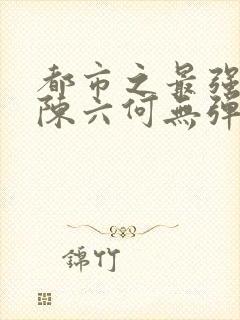 都市之最强
陈六何無弹
錦竹